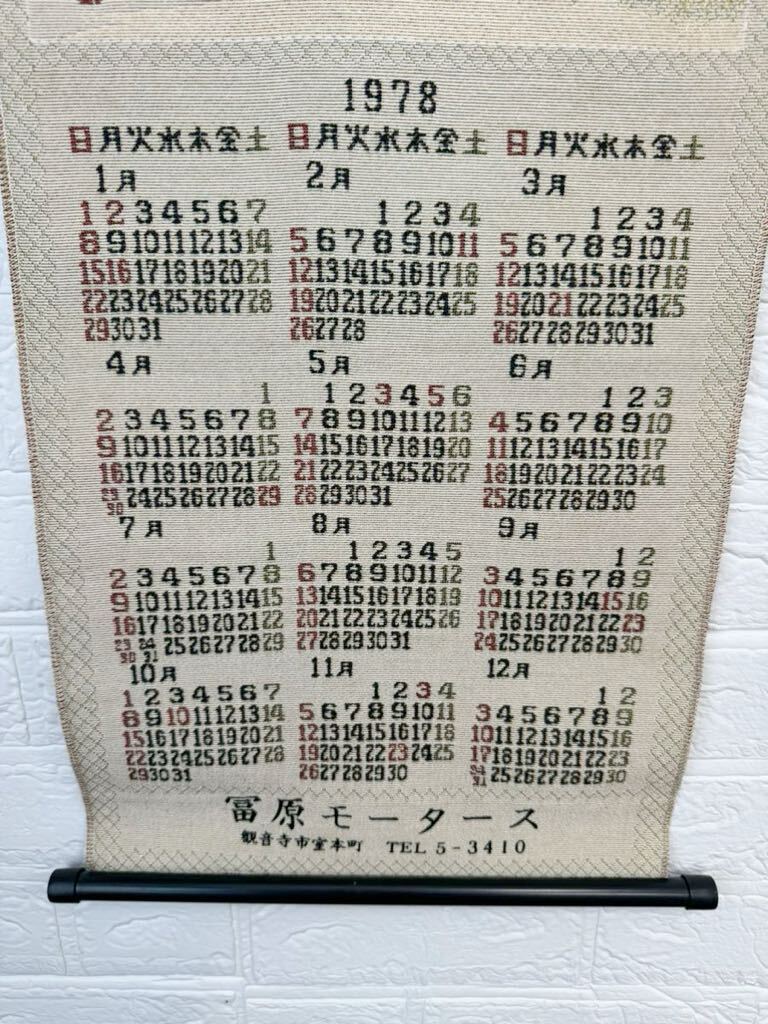 1978
日月火水木金土 日月火水木金土 日月火水木金土
1月 2月 3月
1 2 3 4 5 6 7 1 2 3 4 1 2 3 4
8 9 10 11 12 13 14 5 6 7 8 9 10 11 5 6 7 8 9 10 11
15 16 17 18 19 20 21 12 13 14 15 16 17 18 12 13 14 15 16 17 18
22 23 24 25 26 27 28 19 20 21 22 23 24 25 19 20 21 22 23 24 25
29 30 31 26 27 28 26 27 28 29 30 31
4月 5月 6月
1 1 2 3 4 5 6 1 2 3
2 3 4 5 6 7 8 7 8 9 10 11 12 13 4 5 6 7 8 9 10
9 10 11 12 13 14 15 14 15 16 17 18 19 20 11 12 13 14 15 16 17
16 17 18 19 20 21 22 21 22 23 24 25 26 27 18 19 20 21 22 23 24
23/30 24 25 26 27 28 29 28 29 30 31 25 26 27 28 29 30
7月 8月 9月
1 1 2 3 4 5 1 2
2 3 4 5 6 7 8 6 7 8 9 10 11 12 3 4 5 6 7 8 9
9 10 11 12 13 14 15 13 14 15 16 17 18 19 10 11 12 13 14 15 16
16 17 18 19 20 21 22 20 21 22 23 24 25 26 17 18 19 20 21 22 23
23/30 24/31 25 26 27 28 29 27 28 29 30 31 24 25 26 27 28 29 30
10月 11月 12月
1 2 3 4 5 6 7 1 2 3 4 1 2
8 9 10 11 12 13 14 5 6 7 8 9 10 11 3 4 5 6 7 8 9
15 16 17 18 19 20 21 12 13 14 15 16 17 18 10 11 12 13 14 15 16
22 23 24 25 26 27 28 19 20 21 22 23 24 25 17 18 19 20 21 22 23
29 30 31 26 27 28 29 30 24/31 25 26 27 28 29 30
冨原モータース
観音寺市室本町 TEL 5-3410